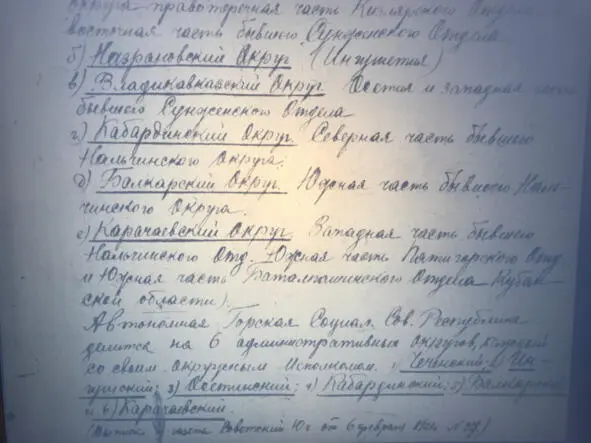 округа правоторочная часть Кизлярского Отдела
восточная часть бывшего Сунженского Отдела
б) Назрановский Округ. (Ингушетия)
в) Владикавказский Округ. Осетия и западная часть
бывшего Сунженского Отдела
г) Кабардинский Округ. Северная часть бывшего
Нальчинского Округа.
д) Балкарский Округ. Южная часть бывшего Наль-
чинского Округа.
е) Карачаевский Округ. Западная часть бывшего
Нальчинского Отд. Южная часть Пятигорского Отд
и Южная часть Баталпашинского Отдела Кубан-
ской области).
Автономная Горская Социал. Сов. Республика
делится на 6 административных округов,
со своим окружным Исполкомом. 1) Чеченский; 2) Ин-
гушский; 3) Осетинский; 4) Кабардинский; 5) Балкарский
и 6) Карачаевский.
Советский Юг от 6 февраля